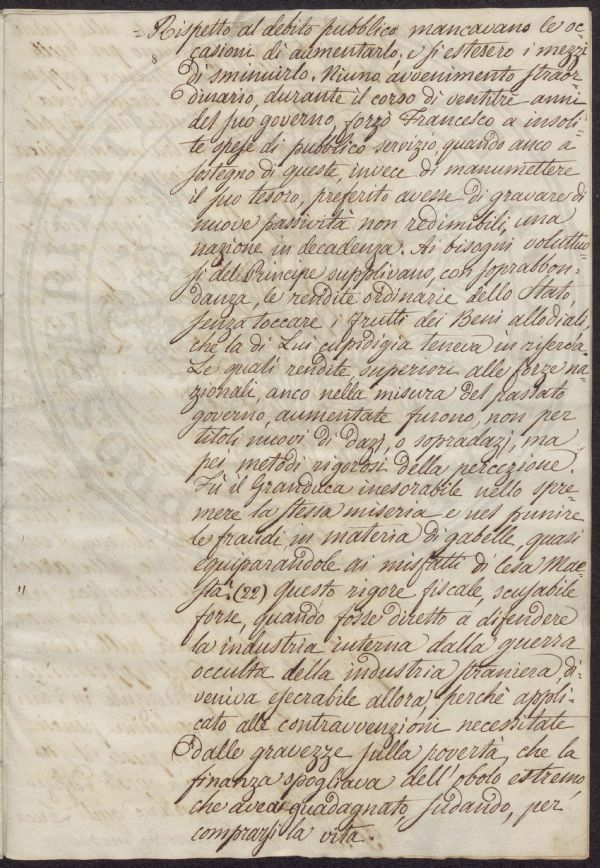 = Rispetto al debito pubblico, mancavano le oc=
casioni di aumentarlo, e si estesero i mezzi
di sminuirlo. Niuno avvenimento straor=
dinario, durante il corso di ventitre anni
del suo governo, forzò Francesco a insoli=
te spese di pubblico servizio, quando anco a
sostegno di queste, invece di manumettere
il suo tesoro, preferito avesse di gravare di
nuove passività non redimibili, una
nazione in decadenza. Ai bisogni voluttuo=
si del Principe supplivano, con soprabbon=
danza, le rendite ordinarie dello Stato,
senza toccare i frutti dei Beni allodiali,
che la di Lui cupidigia teneva in riserva.
Le quali rendite, superiori alle forze na=
zionali, anco nella misura del passato
governo, aumentate furono, non per
titoli nuovi di dazj, o sopradazj, ma
pei metodi rigorosi della percezione.
Fù il Granduca inesorabile nello spre=
mere la stessa miseria e nel punire
le fraudi in materia di gabelle, quasi
equiparandole ai misfatti di Lesa Mae=
" stà. (22) Questo rigore fiscale, scusabile
forse, quando fosse diretto a difendere
la industria interna dalla guerra
occulta della industria straniera, di=
veniva esecrabile allora, perchè appli=
cato alle contravvenzioni necessitate
dalle gravezze sulla povertà, che la
finanza spogliava dell'obolo estremo
che avea guadagnato, sudando, per
comprarsi la vita.